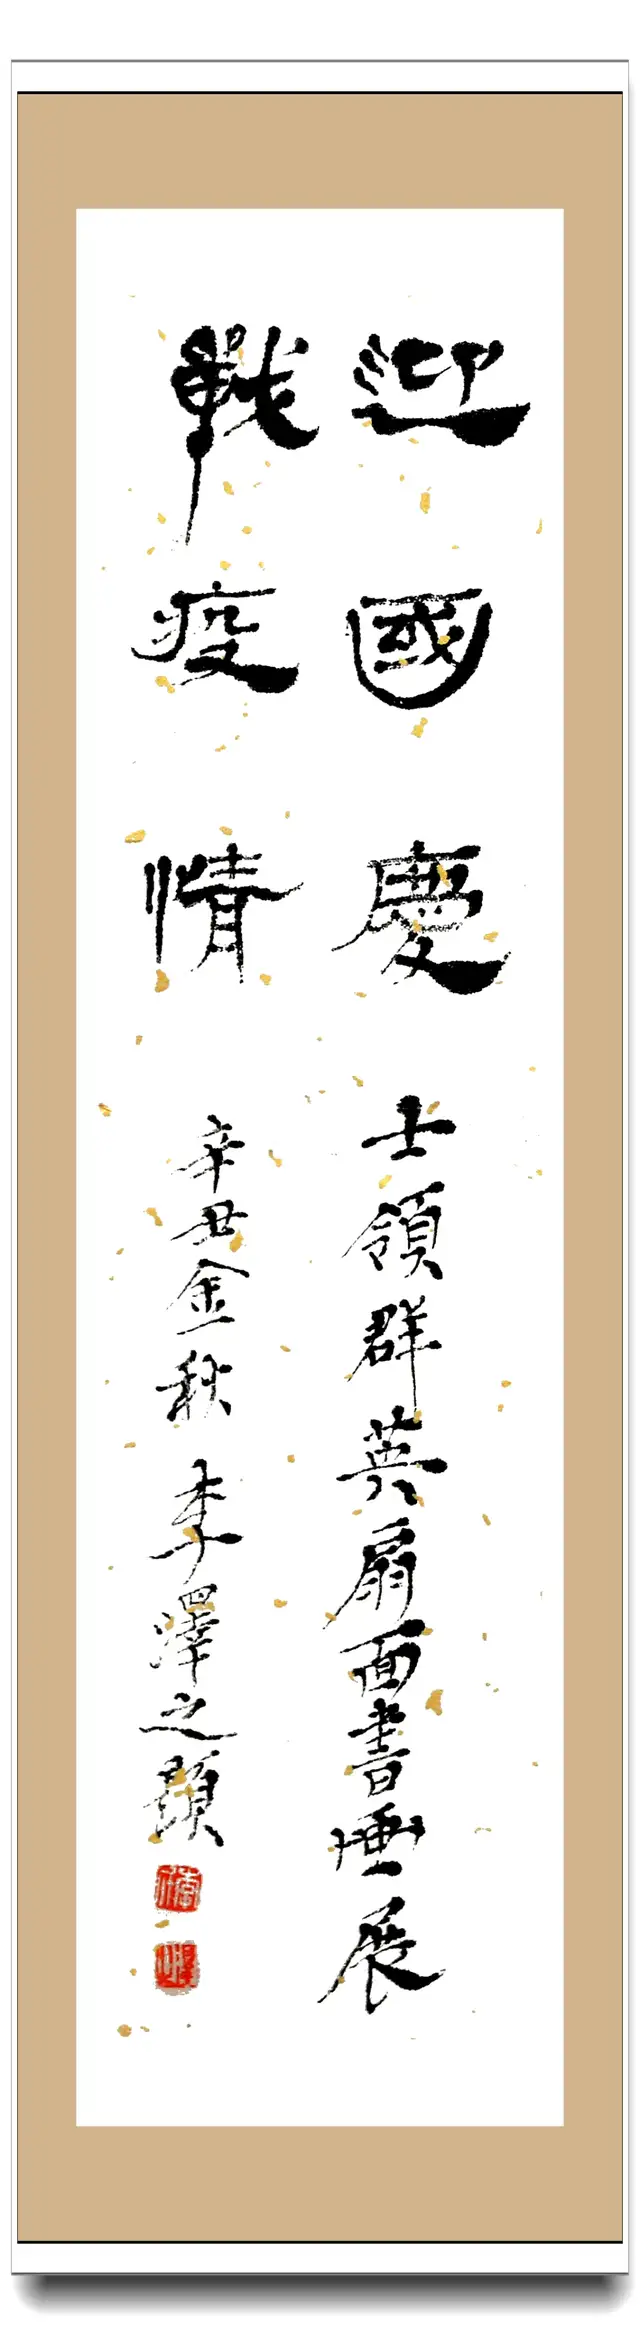 迎國慶
戰疫情
士領群英扇面書畫展
辛丑金秋 李澤之題